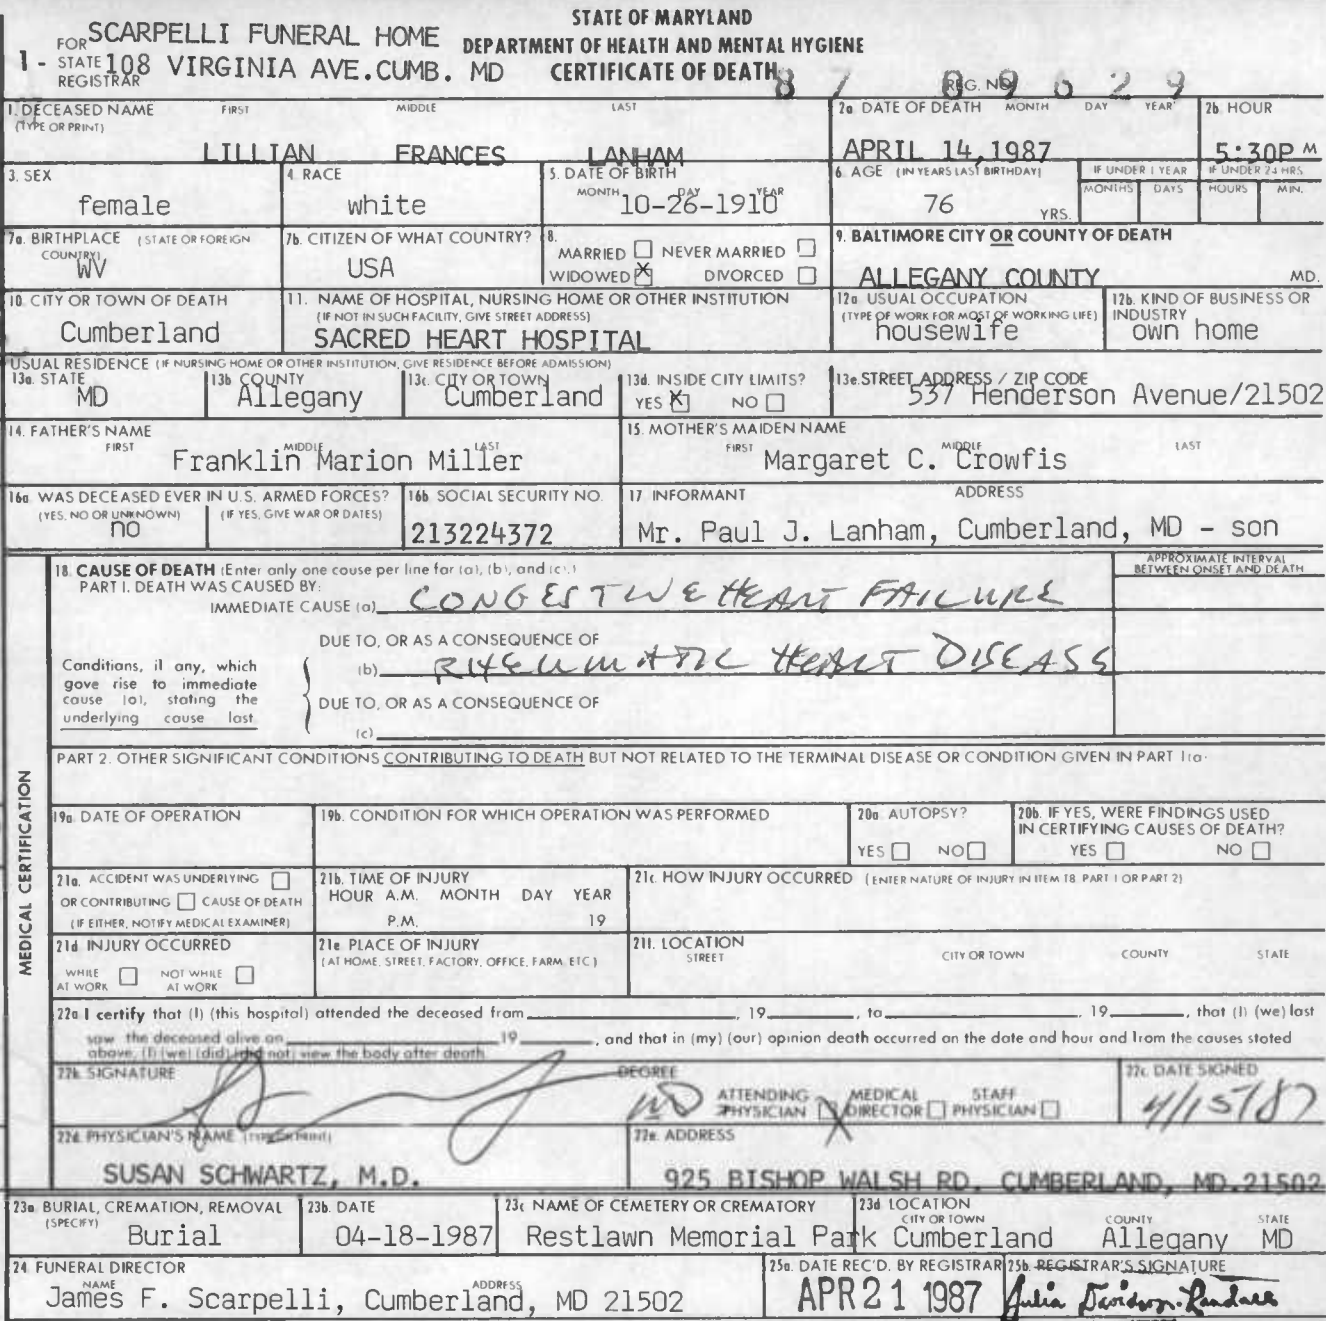 STATE OF MARYLAND
DEPARTMENT OF HEALTH AND MENTAL HYGIENE
CERTIFICATE OF DEATH
1 - FOR STATE REGISTRAR
SCARPELLI FUNERAL HOME
108 VIRGINIA AVE.CUMB. MD
REG. NO. 87 09629
1. DECEASED NAME (TYPE OR PRINT) FIRST MIDDLE LAST
LILLIAN FRANCES LANHAM
2a DATE OF DEATH MONTH DAY YEAR
APRIL 14,1987
2b. HOUR
5:30P M
3. SEX
female
4. RACE
white
5. DATE OF BIRTH
MONTH DAY YEAR
10-26-1910
6. AGE (IN YEARS LAST BIRTHDAY)
76 YRS.
IF UNDER 1 YEAR MONTHS DAYS
IF UNDER 24 HRS HOURS MIN.
7a. BIRTHPLACE (STATE OR FOREIGN COUNTRY)
WV
7b. CITIZEN OF WHAT COUNTRY?
USA
8.
MARRIED NEVER MARRIED
WIDOWED X DIVORCED
9. BALTIMORE CITY OR COUNTY OF DEATH
ALLEGANY COUNTY MD.
10. CITY OR TOWN OF DEATH
Cumberland
11. NAME OF HOSPITAL, NURSING HOME OR OTHER INSTITUTION
(IF NOT IN SUCH FACILITY, GIVE STREET ADDRESS)
SACRED HEART HOSPITAL
12a USUAL OCCUPATION
(TYPE OF WORK FOR MOST OF WORKING LIFE)
housewife
12b. KIND OF BUSINESS OR INDUSTRY
own home
USUAL RESIDENCE (IF NURSING HOME OR OTHER INSTITUTION, GIVE RESIDENCE BEFORE ADMISSION)
13a. STATE
MD
13b COUNTY
Allegany
13c. CITY OR TOWN
Cumberland
13d. INSIDE CITY LIMITS?
YES X NO
13e. STREET ADDRESS / ZIP CODE
537 Henderson Avenue/21502
14. FATHER'S NAME
FIRST MIDDLE LAST
Franklin Marion Miller
15. MOTHER'S MAIDEN NAME
FIRST MIDDLE LAST
Margaret C. Crowfis
16a WAS DECEASED EVER IN U.S. ARMED FORCES?
(YES, NO OR UNKNOWN) (IF YES, GIVE WAR OR DATES)
no
16b SOCIAL SECURITY NO.
213224372
17 INFORMANT ADDRESS
Mr. Paul J. Lanham, Cumberland, MD - son
MEDICAL CERTIFICATION
18. CAUSE OF DEATH (Enter only one cause per line for (a), (b), and (c).)
APPROXIMATE INTERVAL BETWEEN ONSET AND DEATH
PART I. DEATH WAS CAUSED BY:
IMMEDIATE CAUSE (a) CONGESTIVE HEART FAILURE
DUE TO, OR AS A CONSEQUENCE OF
(b) RHEUMATIC HEART DISEASE
DUE TO, OR AS A CONSEQUENCE OF
(c)
Conditions, if any, which
gave rise to immediate
cause (a), stating the
underlying cause last
PART 2. OTHER SIGNIFICANT CONDITIONS CONTRIBUTING TO DEATH BUT NOT RELATED TO THE TERMINAL DISEASE OR CONDITION GIVEN IN PART 1(a)
19a. DATE OF OPERATION
19b. CONDITION FOR WHICH OPERATION WAS PERFORMED
20a AUTOPSY?
YES NO
20b. IF YES, WERE FINDINGS USED
IN CERTIFYING CAUSES OF DEATH?
YES NO
21a. ACCIDENT WAS UNDERLYING
OR CONTRIBUTING CAUSE OF DEATH
(IF EITHER, NOTIFY MEDICAL EXAMINER)
21b. TIME OF INJURY
HOUR A.M. MONTH DAY YEAR
P.M. 19
21c. HOW INJURY OCCURRED (ENTER NATURE OF INJURY IN ITEM 18. PART 1 OR PART 2)
21d INJURY OCCURRED
WHILE AT WORK NOT WHILE AT WORK
21e PLACE OF INJURY
(AT HOME, STREET, FACTORY, OFFICE, FARM, ETC)
21f. LOCATION
STREET CITY OR TOWN COUNTY STATE
22a I certify that (I) (this hospital) attended the deceased from 19 , to 19 , that (I) (we) last
saw the deceased alive on 19 , and that in (my) (our) opinion death occurred on the date and hour and from the causes stated
above, (I) (we) (did) (did not) view the body after death
22b. SIGNATURE
DEGREE
MD
ATTENDING PHYSICIAN X MEDICAL DIRECTOR STAFF PHYSICIAN
22c. DATE SIGNED
4/15/87
22d. PHYSICIAN'S NAME (TYPE OR PRINT)
SUSAN SCHWARTZ, M.D.
22e. ADDRESS
925 BISHOP WALSH RD. CUMBERLAND, MD.21502
23a BURIAL, CREMATION, REMOVAL (SPECIFY)
Burial
23b. DATE
04-18-1987
23c NAME OF CEMETERY OR CREMATORY
Restlawn Memorial Park
23d LOCATION
CITY OR TOWN COUNTY STATE
Cumberland Allegany MD
24. FUNERAL DIRECTOR
NAME ADDRESS
James F. Scarpelli, Cumberland, MD 21502
25a. DATE REC'D. BY REGISTRAR
APR 21 1987
25b. REGISTRAR'S SIGNATURE
Julia Davidson-Randall